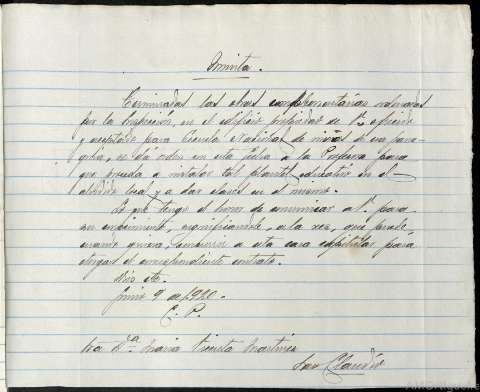 Minuta.
Terminadas las obras complementarias ordenadas
por la Inspección, en el edificio propiedad de V. ofrecido
y aceptado para Escuela Nacional de niñas de esa parro-
quia, se da orden en esta fecha a la Profesora para
que proceda a instalar tal plantel educativo en el
aludido local y a dar clases en el mismo.
Lo que tengo el honor de comunicar a V. para
su conocimiento, significándole, a la vez, que puede
cuando quiera, a esta casa para
otorgar el correspondiente contrato.
Dios etc.
Junio 9 de 1920.
C. P.
Sra Dª. María Martínez
San Claudio